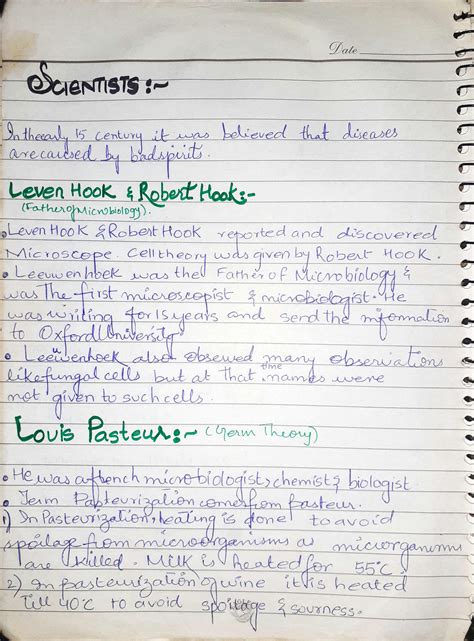 Date
SCIENTISTS :~
In the early 15 century it was believed that diseases
are caused by bad spirits.
Leven Hook & Robert Hook:-
(Father of Microbiology).
• Leven Hook & Robert Hook reported and discovered
Microscope. Cell theory was given by Robert Hook.
• Leeuwenhoek was the Father of Microbiology &
was The first microscopist & microbiologist. He
was writing for 15 years and send the information
to Oxford University
• Leeuwenhoek also observed many observations
like fungal cells but at that time names were
not given to such cells.
Louis Pasteur:~ (Germ Theory)
• He was a french microbiologist, chemist & biologist.
• Term Pasteurization comes from pasteur.
1) In Pasteurization, heating is done to avoid
spoilage from microorganisms as microrganisms
are killed. Milk is heated for 55°C
2) In pasteurization of wine it is heated
till 40°C to avoid spoilage & sourness.